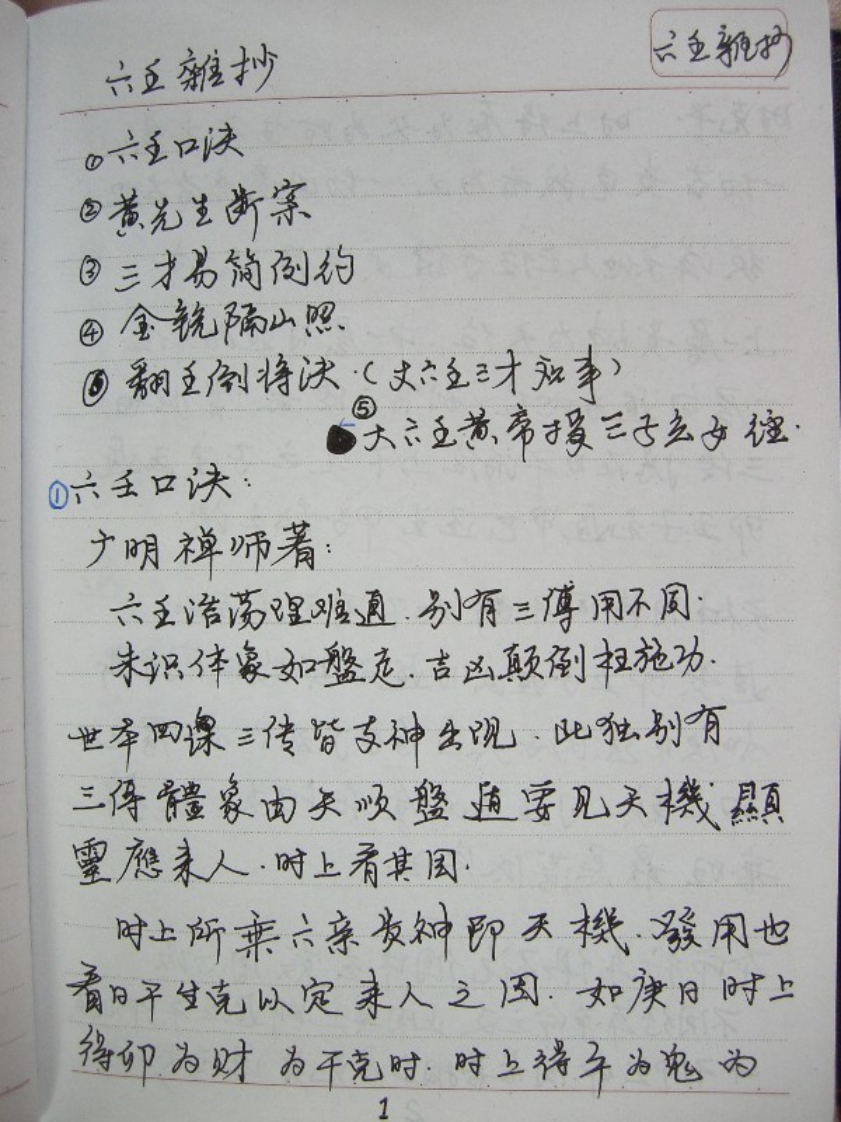 六壬雜抄
六壬雜抄
①六壬口决
②黄先生断案
③三才易简例约
④金镜隔山照
⑥翻壬倒将决.(大六壬三才知事)
⑤
大六壬黄帝授三子玄女经.
①六壬口决:
广明禅师著:
六壬浩荡理难通.别有三傳用不同.
未识体象如盤走.吉凶颠倒枉施功.
世本四课三传皆支神出现.此独别有
三傳體象由天顺盤遁要见天機顯
靈應来人.时上看其因.
时上所乘六亲支神即天機.發用也
看日干生克以定来人之因.如庚日时上
得卯为财为干克时.时上得午为鬼为
1